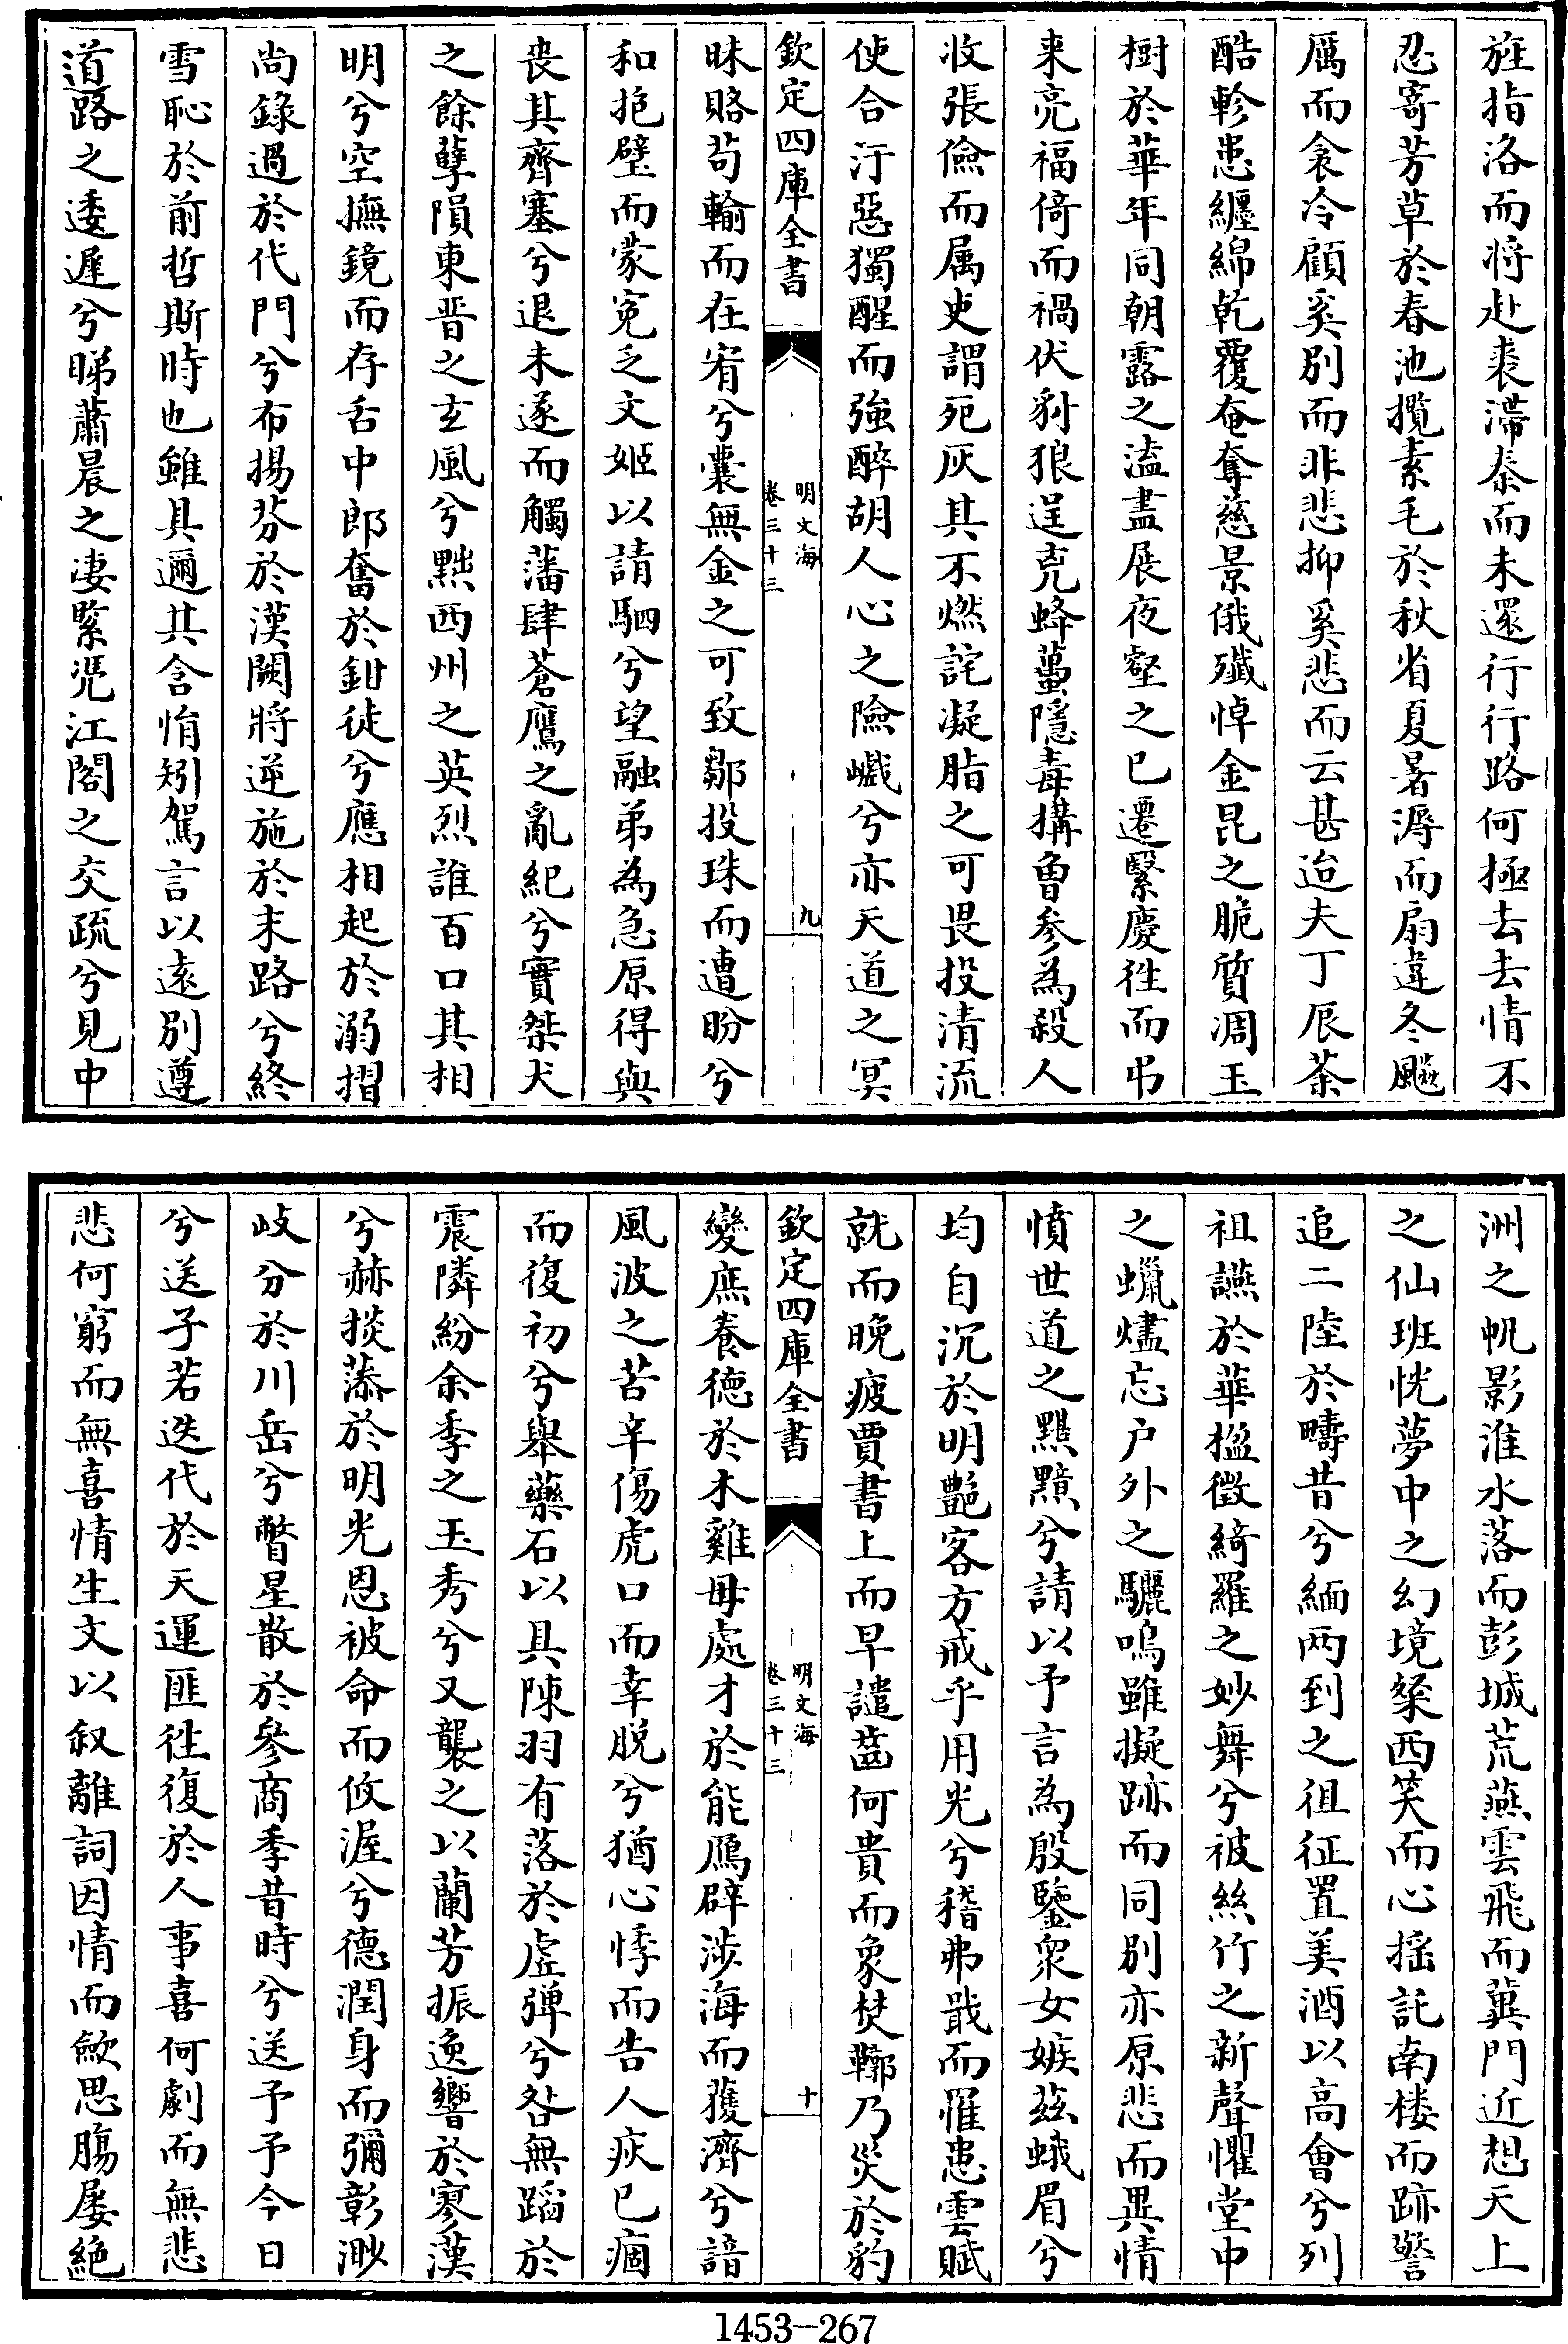 旌指洛而將赴裘滯秦而未還行行路何極去去情不
忍寄芳草於春池攬素毛於秋省夏暑溽而扇違冬飈
厲而衾冷顧奚別而非悲抑奚悲而云甚迨夫丁辰荼
酷軫患纏綿乾覆奄奪慈景俄殲悼金昆之脆質凋玉
樹於華年同朝露之溘盡展夜壑之已遷緊慶徃而弔
来亮福倚而禍伏豺狼逞克蜂蠆隱毒搆曾参為殺人
收張儉而属吏謂死灰其不燃詫凝脂之可畏投清流
使合汙惡獨醒而強醉胡人心之險巇兮亦天道之冥
欽定四庫全書
明文海
卷三十三
九
昧賂苟輸而在宥兮囊無金之可致鄒投珠而遭盼兮
和抱璧而蒙寃乏文姬以請駟兮望融弟為急原得與
喪其齊塞兮退未遂而觸藩肆蒼鷹之亂紀兮實桀犬
之餘孽隕東晋之玄風兮黜西州之英烈誰百口其相
明兮空撫鏡而存舌中郎奮於鉗徒兮應相起於溺摺
尚錄過於代門兮布揚芬於漢闕將逆施於末路兮終
雪恥於前哲斯時也雖具邇其含悁矧駕言以遠別遵
道路之逶遲兮睇蕭晨之凄緊凴江閣之交疏兮見中
洲之帆影淮水落而彭城荒燕雲飛而冀門近想天上
之仙班恍夢中之幻境桀西笑而心摇託南楼而跡警
追二陸於疇昔兮緬两到之徂征置美酒以高會兮列
祖讌於華楹徵綺羅之妙舞兮被絲竹之新聲懼堂中
之蠟燼忘户外之驪鳴雖擬跡而同别亦原悲而異情
憤世道之黮黭兮請以予言為殷鑒衆女嫉兹蛾眉兮
均自沉於明艷客方戒乎用光兮稽弗戢而罹患雲賦
就而晚疲賈書上而早譴齒何貴而象焚鞹乃災於豹
欽定四庫全書
明文海
卷三十三
十
變庶養德於木雞毋處才於能鴈辟涉海而蒦濟兮諳
風波之苦辛傷虎口而幸脱兮猶心悸而告人疢已痼
而復初兮舉藥石以具陳羽有落於虚彈兮咎無蹈於
震隣紛余季之玉秀兮又襲之以蘭芳振逸響於寥漢
兮赫掞藻於明光恩被命而攸渥兮德潤身而彌彰渺
岐分於川岳兮瞥星散於參商季昔時兮送予予今日
兮送子若迭代於天運匪徃復於人事喜何劇而無悲
悲何窮而無喜情生文以叙離詞因情而歛思腸屡絶
1453-267